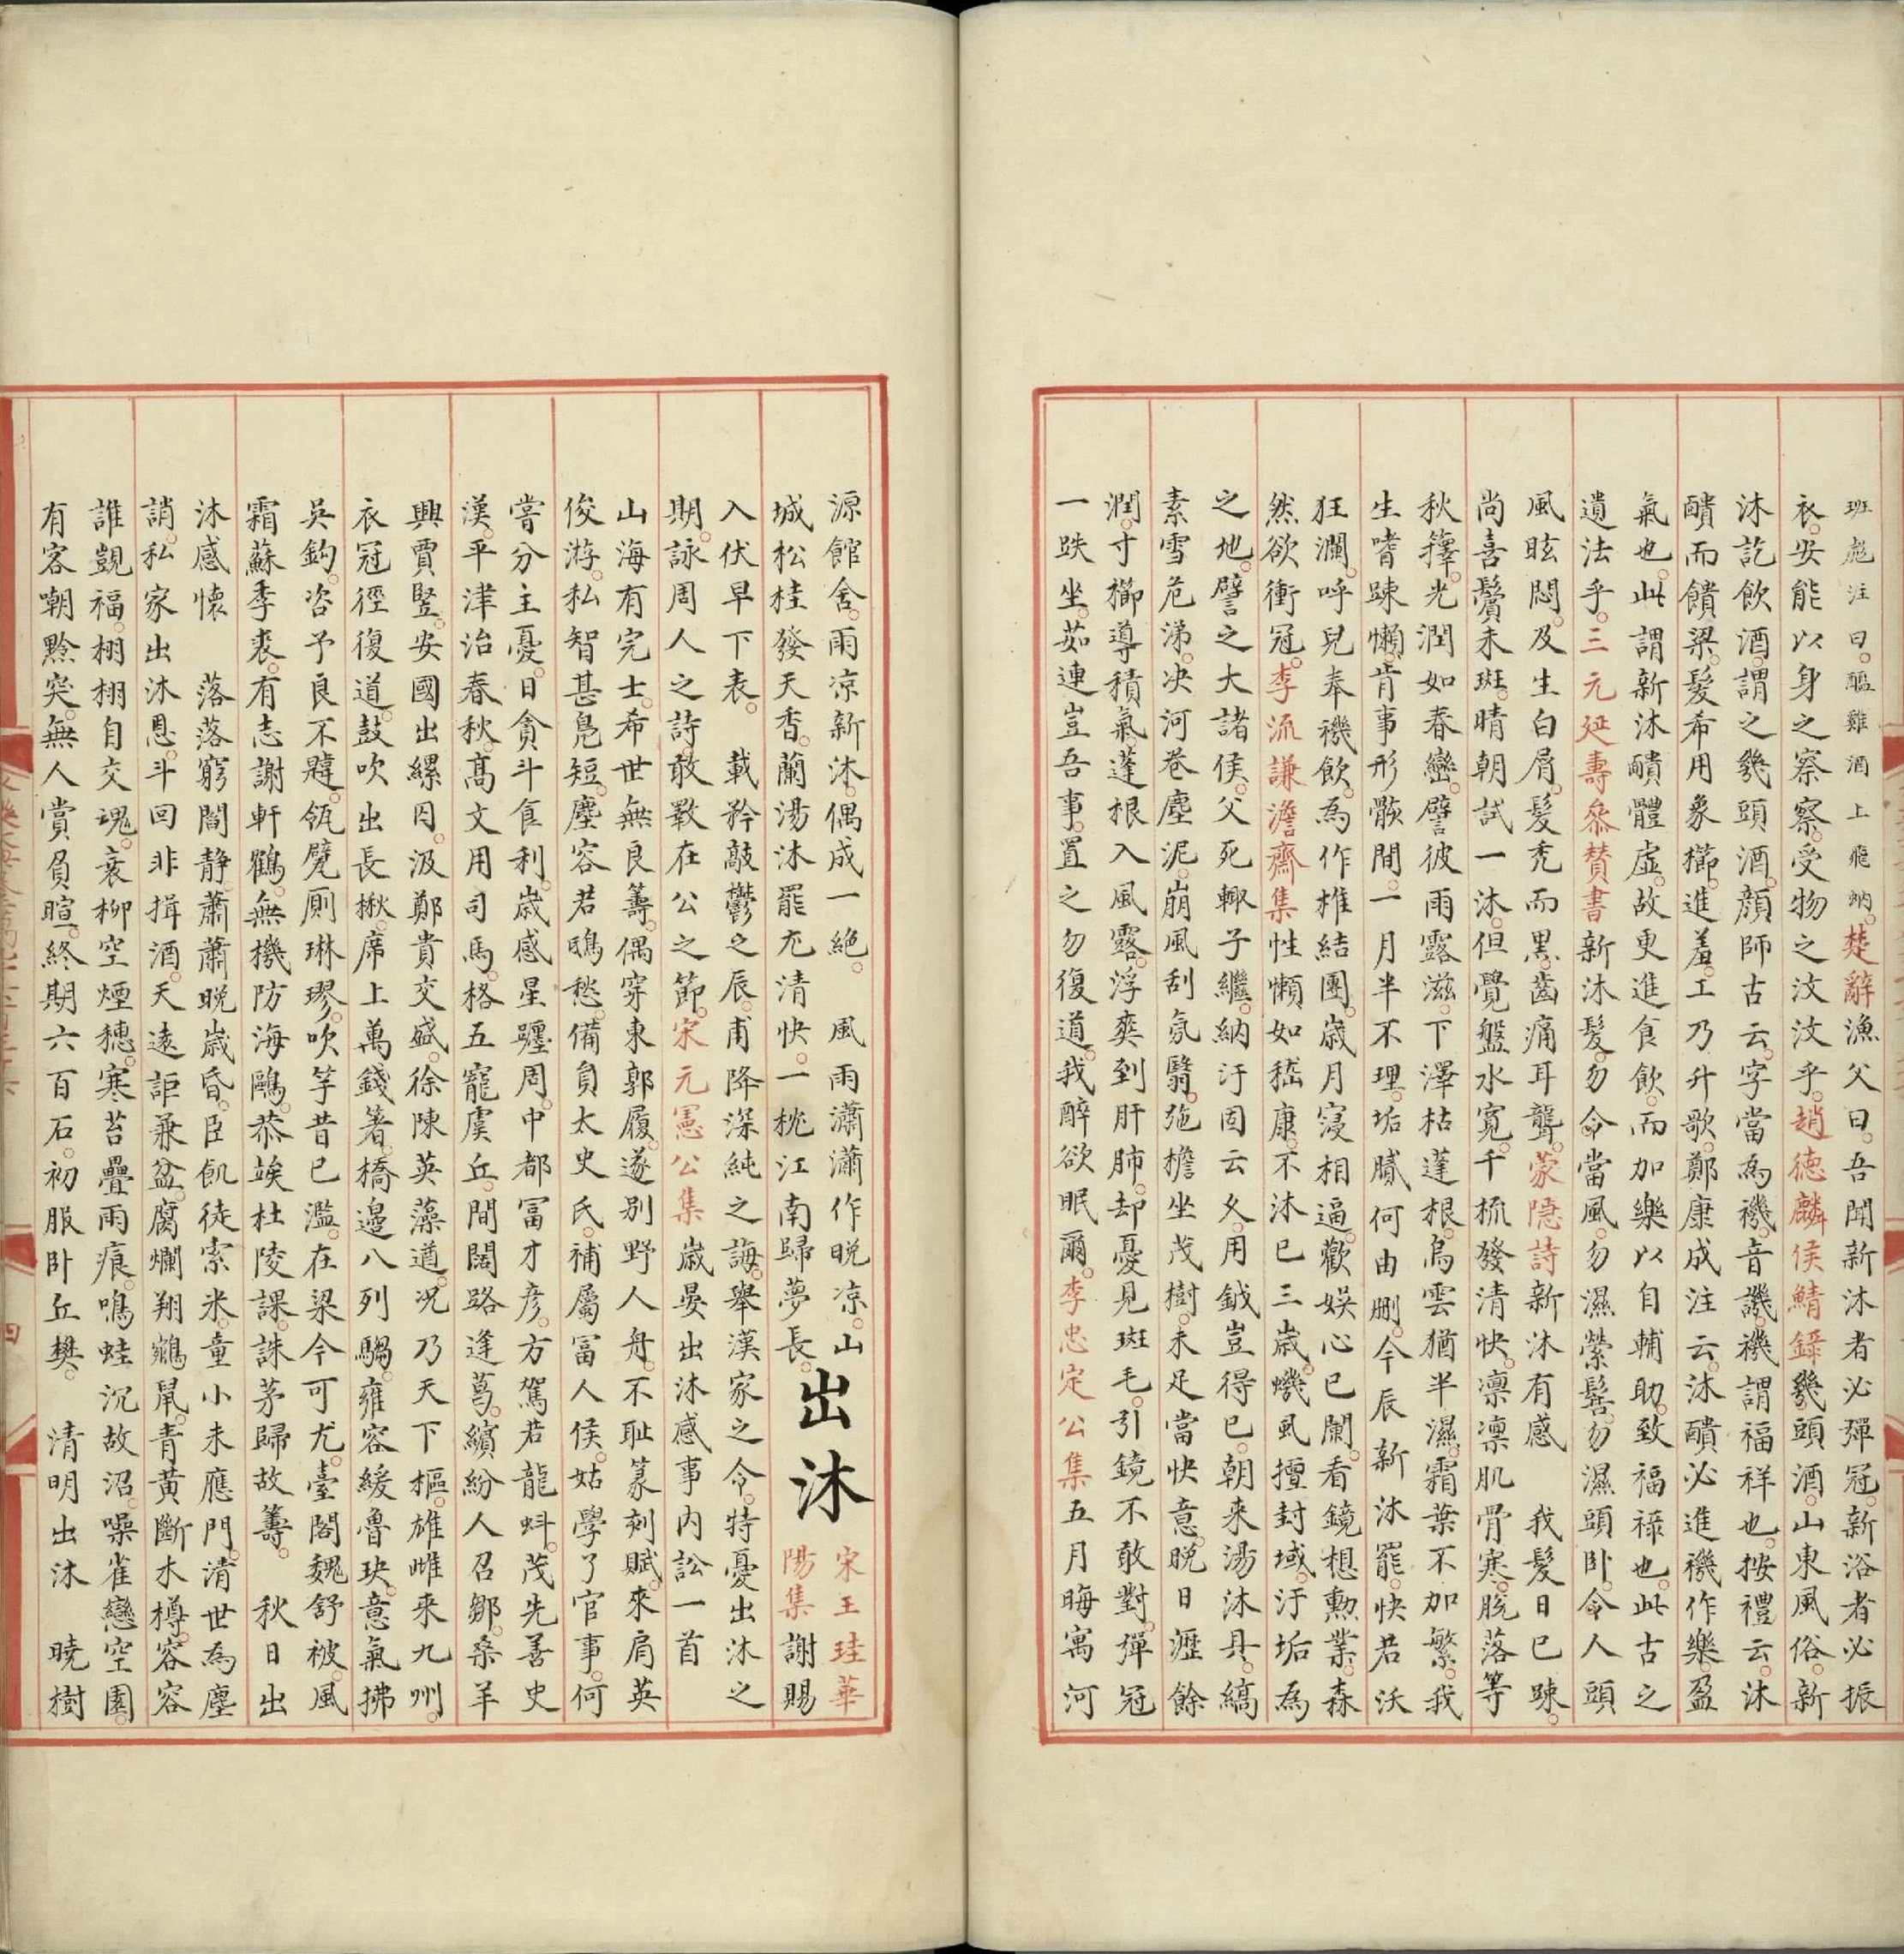 班彪注曰醞雞酒上飛蚋楚辭漁父曰吾聞新沐者必彈冠新浴者必振
衣安能以身之察察受物之汶汶乎趙德麟侯鯖錄幾頭酒山東風俗新
沐訖飲酒謂之幾頭酒顏師古云字當為禨音譏禨謂福祥也按禮云沐
醴而饋粱髮希用象櫛進羞工乃升歌鄭康成注云沐醴必進禨作樂盈
氣也此謂新沐體虛故更進食飲而加樂以自輔助致福祿也此古之
遺法乎三元延壽參贊書新沐髮勿令當風勿濕縈髻勿濕頭卧令人頭
風眩悶及生白屑髮禿而黑齒痛耳聾蒙隱詩新沐有感　我髮日已疎
尚喜鬢未斑晴朝試一沐但覺盤水寬千梳發清快凛凛肌骨寒脫落等
秋籜光潤如春巒譬彼雨露滋下澤枯蓬根烏雲猶半濕霜葉不加繁我
生嗜疎懶肯事形骸間一月半不理垢膩何由刪今辰新沐罷快若沃
狂瀾呼兒奉禨飲為作椎結團歲月寖相逼歡娛心已闌看鏡想勲業森
然欲衝冠李流謙澹齋集性懶如嵇康不沐已三歲蟣虱擅封域汙垢為
之地譬之大諸侯父死輙子繼納汙固云久用鉞豈得已朝來湯沐具縞
素雪危涕决河卷塵泥崩風刮氛翳弛檐坐茂樹未足當快意晚日瀝餘
潤寸櫛導積氣蓬根入風露浮爽到肝肺却憂見斑毛引鏡不敢對彈冠
一趺坐茹連豈吾事置之勿復道我醉欲眠爾李忠定公集五月晦寓河
源館舍雨凉新沐偶成一絶　風雨瀟瀟作晚凉山
城松桂發天香蘭湯沐罷尤清快一枕江南歸夢長
出沐
宋王珪華
陽集謝賜
入伏早下表　載矜敲鬱之辰甫降深純之誨舉漢家之令特憂出沐之
期詠周人之詩敢斁在公之節宋元憲公集歲晏出沐感事内訟一首
山海有完士希世無良籌偶穿東郭履遂别野人舟不耻篆刻賦來肩英
俊游私智甚鳧短塵容若鴟愁備負太史氏補屬富人侯姑學了官事何
嘗分主憂日貪斗食利歲感星躔周中都冨才彦方駕若龍蚪茂先善史
漢平津治春秋高文用司馬格五寵虞丘間闊路逢葛繽紛人召鄒桑羊
興賈豎安國出縲囚汲鄭貴交盛徐陳英藻道况乃天下樞雄雌來九州
衣冠徑復道鼓吹出長楸席上萬錢箸橋邊八列騶雍容緩魯玦意氣拂
吳鈎咨予良不韙瓴甓厠琳璆吹竽昔已濫在梁今可尤臺閣魏舒被風
霜蘇季裘有志謝軒鶴無機防海鷗恭竢杜陵課誅茅歸故籌　秋日出
沐感懷　落落窮閻静蕭蕭晚歲昏臣飢徒索米童小未應門清世為塵
誚私家出沐恩斗回非揖酒天遠詎兼盆腐爛翔鵷鼠青黄斷木樽容容
誰覬福栩栩自交魂衰柳空煙穗寒苔疊雨痕鳴蛙沉故沼噪雀戀空園
有客嘲黔突無人賞負暄終期六百石初服卧丘樊　清明出沐　曉樹